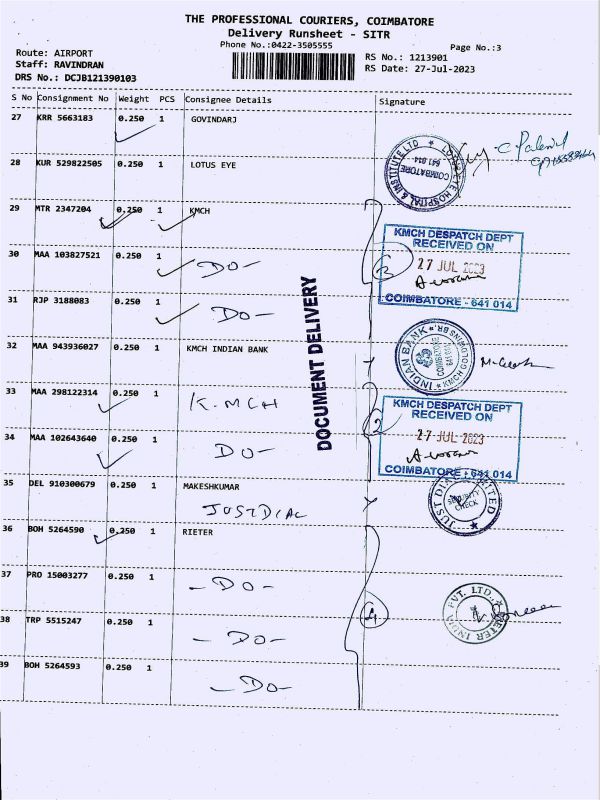 THE PROFESSIONAL COURIERS, COIMBATORE
Delivery Runsheet - SITR
Phone No.:0422-3505555
Page No.:3
Route: AIRPORT
RS No.: 1213901
Staff: RAVINDRAN
RS Date: 27-Jul-2023
DRS No.: DCJB121390103
S No Consignment No Weight PCS Consignee Details Signature
27 KRR 5663183 0.250 1 GOVINDARJ
28 KUR 529822505 0.250 1 LOTUS EYE
LOTUS EYE HOSPITAL & INSTITUTE LTD
COIMBATORE
641 014
29 MTR 2347204 0.250 1 KMCH
KMCH DESPATCH DEPT
RECEIVED ON
27 JUL 2023
COIMBATORE - 641 014
3
30 MAA 103827521 0.250 1
-DO-
31 RJP 3188083 0.250 1
DO-
DOCUMENT DELIVERY
32 MAA 943936027 0.250 1 KMCH INDIAN BANK
INDIAN BANK
33 MAA 298122314 0.250 1
K.MCH
KMCH DESPATCH DEPT
RECEIVED ON
27 JUL 2023
COIMBATORE - 641 014
2
34 MAA 102643640 0.250 1
DO-
35 DEL 910300679 0.250 1 MAKESHKUMAR
JUSTDIAL
JUST DIAL LIMITED
SECURITY
CHECK
36 BOH 5264590 0.250 1 RIETER
37 PRO 15003277 0.250 1
-DO-
RIETER INDIA PVT. LTD.,
4
38 TRP 5515247 0.250 1
-DO-
39 BOH 5264593 0.250 1
-DO-